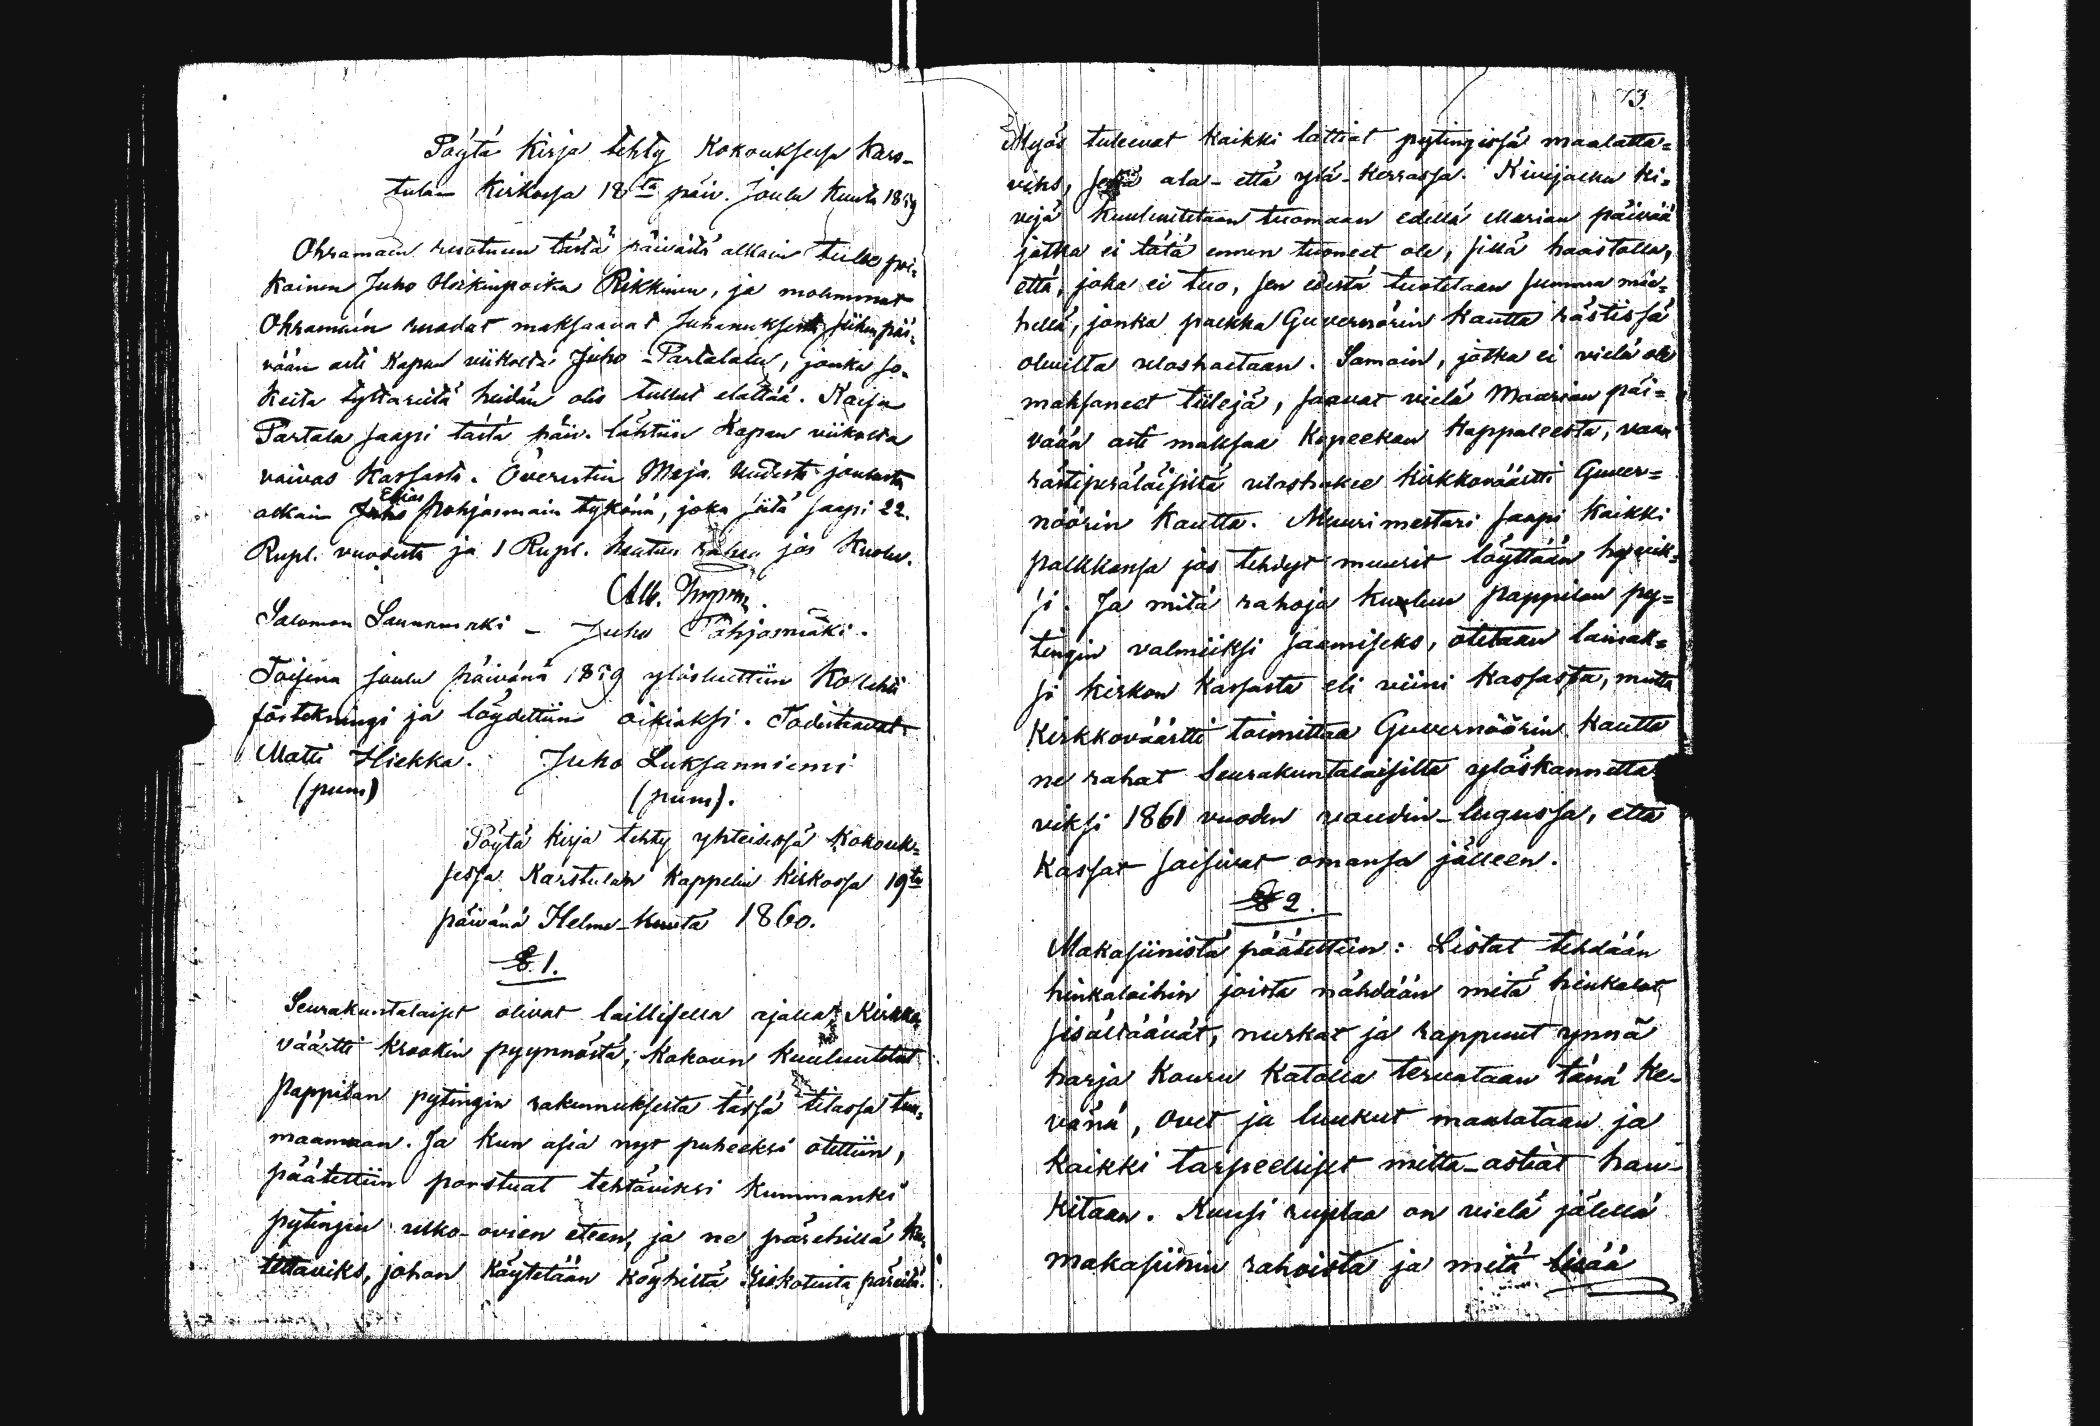 Pöytä Kirja tehty Kokouksesa Kars-
tulan Kirkossa 18ta päiv. Joulu Kuuta 1859
Ohramäin ruotuun tästä päivästä alkain tulee poi-
kainen Juho Heikinpoika Rikkinen, ja molemmat
Ohramäin ruodut maksaavat Juhanuksesta siihen päi-
vään asti Kapan viikolta Juho Partalalle, jonka so-
keita tyttäreitä heidän olis tullut elättää. Kaisa
Partala saapi tästä päiv. lähtiin Kapan viikolta
vaivas Kassasta. Överstin Maja Uudesta joulusta
alkain Elias Pohjasmäin tykönä, joka siitä saapi 22
Rupl. vuodesta ja 1 Rupl. hautaus rahaa jos Kuolee.
Salomon Saunamäki - Juho Pohjasmäki.
Toisena joulu päivänä 1859 ylösluettiin Kollehti
förtekningi ja löydettiin oikiaksi. Todistaavat
Matti Hiekka. Juho Luksanniemi
(pum) (pum).
Pöytä Kirja tehty yhteisessä Kokouk-
sessa Karstulan Kappelin Kirkossa 19ta
päivänä Helme-Kuuta 1860.
§ 1.
Seurakuntalaiset olivat laillisella ajalla Kirkko
väärtti Krookin pyynnöstä, Kokoon Kuulutetut
pappilan pytingin rakennuksesta tässä tilassa tuu-
maamaan. Ja Kun asia nyt puheeksi otettiin,
päätettiin porstuat tehtäviksi Kummanki
pytingin ulko-ovien eteen, ja ne pärehillä Ka-
tettaviks, johon Käytetään Köyhiltä kiskotuita päreitä.
73.
Myös tulevat Kaikki lattiat pytingissä maalatta-
viks, sekä ala- että ylä-Kerrassa. Kivijalka Ki-
vejä Kuulutetaan tuomaan edellä Marian päivää
jotka ei tätä ennen tuoneet ole, sillä haastolla,
että, joka ei tuo, sen edestä tuotetaan summa mie-
hellä, jonka palkka Guvernörin Kautta rästissä
olevilta uloshaetaan. Samoin, jotka ei vielä ole
maksaneet tiilejä, saavat vielä Maarian päi-
vään asti maksaa Kopeekan Kappaleesta, vaan
rästiperäläisiltä uloshakee Kirkkoväärtti Guver-
nöörin Kautta. Muurimestari saapi Kaikki
palkkansa jos tehdyt muurit löyttään hyvik-
si. Ja mitä rahoja Kuuluu pappilan py-
tingin valmiiksi saamiseks, otetaan lainak-
si Kirkon Kassasta eli viini Kassasta, mutta
Kirkkoväärtti toimittaa Guvernöörin Kautta
ne rahat Seurakuntalaisilta ylöskannetta
viksi 1861 vuoden voudin-lugussa, että
Kassat saisivat omansa jälleen.
§ 2.
Makasiinista päätettiin: Listat tehdään
hinkaloihin joista nähdään mitä hinkalot
sisältäävät, nurkat ja rappuut ynnä
harja Kouru Katolla tervataan tänä Ke-
vänä, ovet ja luukut maalataan ja
Kaikki tarpeelliset mitta-astiat han-
kitaan. Kuusi ruplaa on vielä jälellä
makasiinin rahoista ja mitä lisää